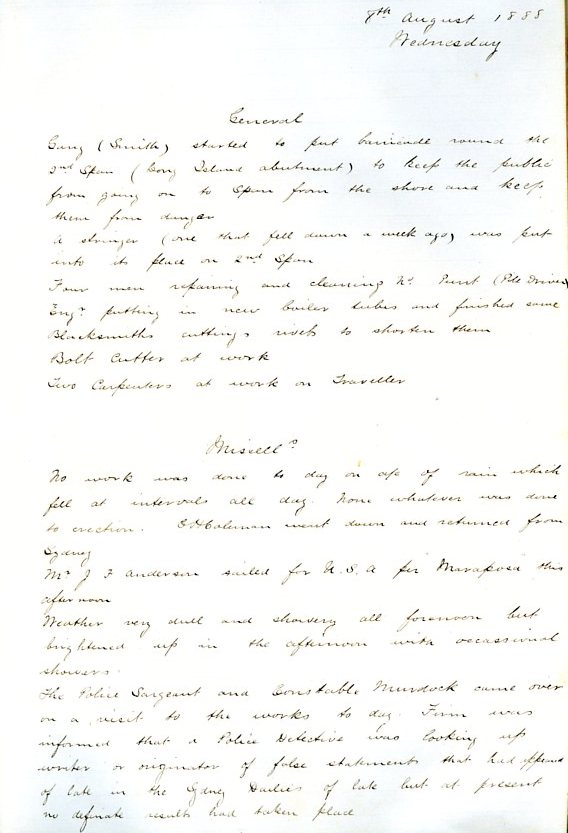 8th August 1888
Wednesday
General
Gang (Smith) started to put barricade round the
2nd Span (Long Island abutment) to keep the public
from going on to Span from the shore and keep
them from danger
A stringer (one that fell down a week ago) was put
into its place on 2nd Span
Four men repairing and cleaning No. Punt (Pile Driver)
Engr putting in new boiler tubes and finished same
Blacksmiths cutting rivets to shorten them
Bolt Cutter at work
Two Carpenters at work on Traveller
Missells
No work was done to day on a/c of rain which
fell at intervals all day. None whatever was done
to erection. Coleman went down and returned from
Sydney
Mr J F Anderson sailed for U.S.A per Maraposa this
afternoon
Weather very dull and showery all forenoon but
brightened up in the afternoon with occassional
showers.
The Police Sargeant and Constable Murdock came over
on a visit to the works to day. Firm was
informed that a Police Detective was looking up
writer or originator of false statements that had appeared
of late in the Sydney Dailies of late but at present
no definate results had taken place